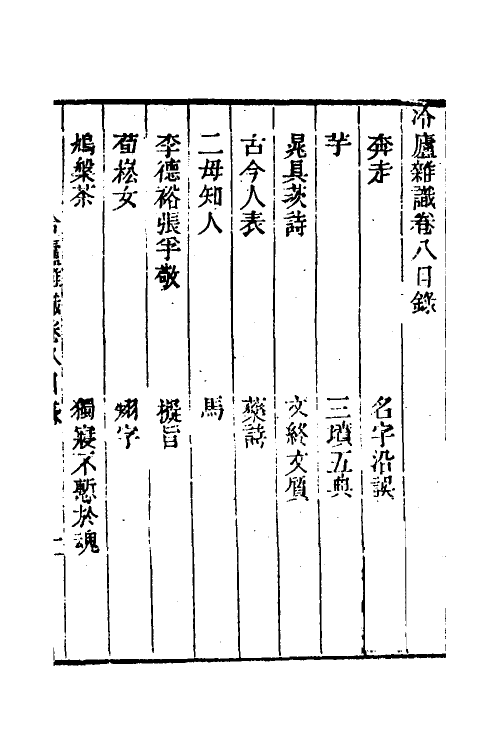 冷廬雜識卷八目錄
奔走　名字沿誤
芋　三墳五典
晁具茨詩　文終文質
古今人表　藥詩
二毋知人　馬
李德裕張孚敬　擬旨
荀崧女　翊字
鳩槃茶　獨寢不慙於魂
冷廬雜識卷八目錄　一